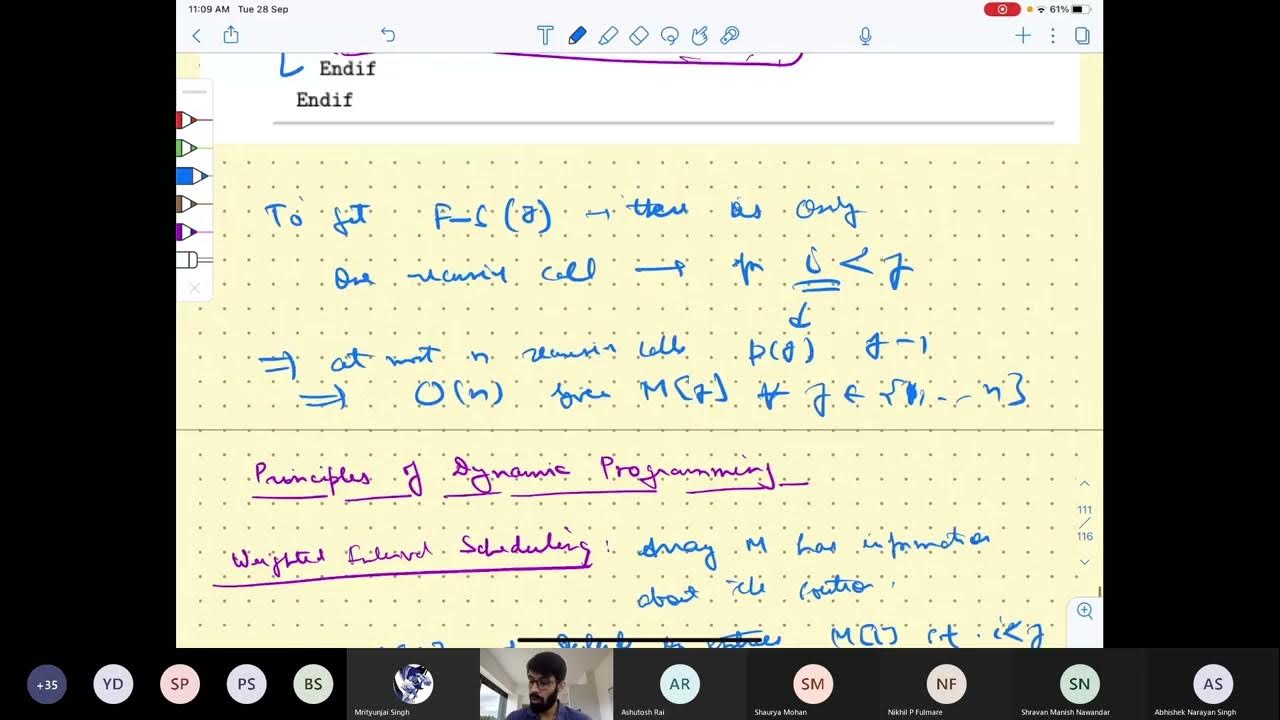 11:09 AM Tue 28 Sep
61%
Endif
Endif
To get F-S(j) → there is only
One recursive call → for i < j
⇒ at most n recursive calls p(j) j-1
⇒ O(n) given M[j] ∀ j ∈ {1, ... n}
Principles of Dynamic Programming
Weighted Interval Scheduling: Array M has information
about the solution.
M[i] s.t. i<j
111
/
116
+35
YD
SP
PS
BS
AR
SM
NF
SN
AS
Mrityunjai Singh
Ashutosh Rai
Shaurya Mohan
Nikhil P Fulmare
Shravan Manish Nawandar
Abhishek Narayan Singh